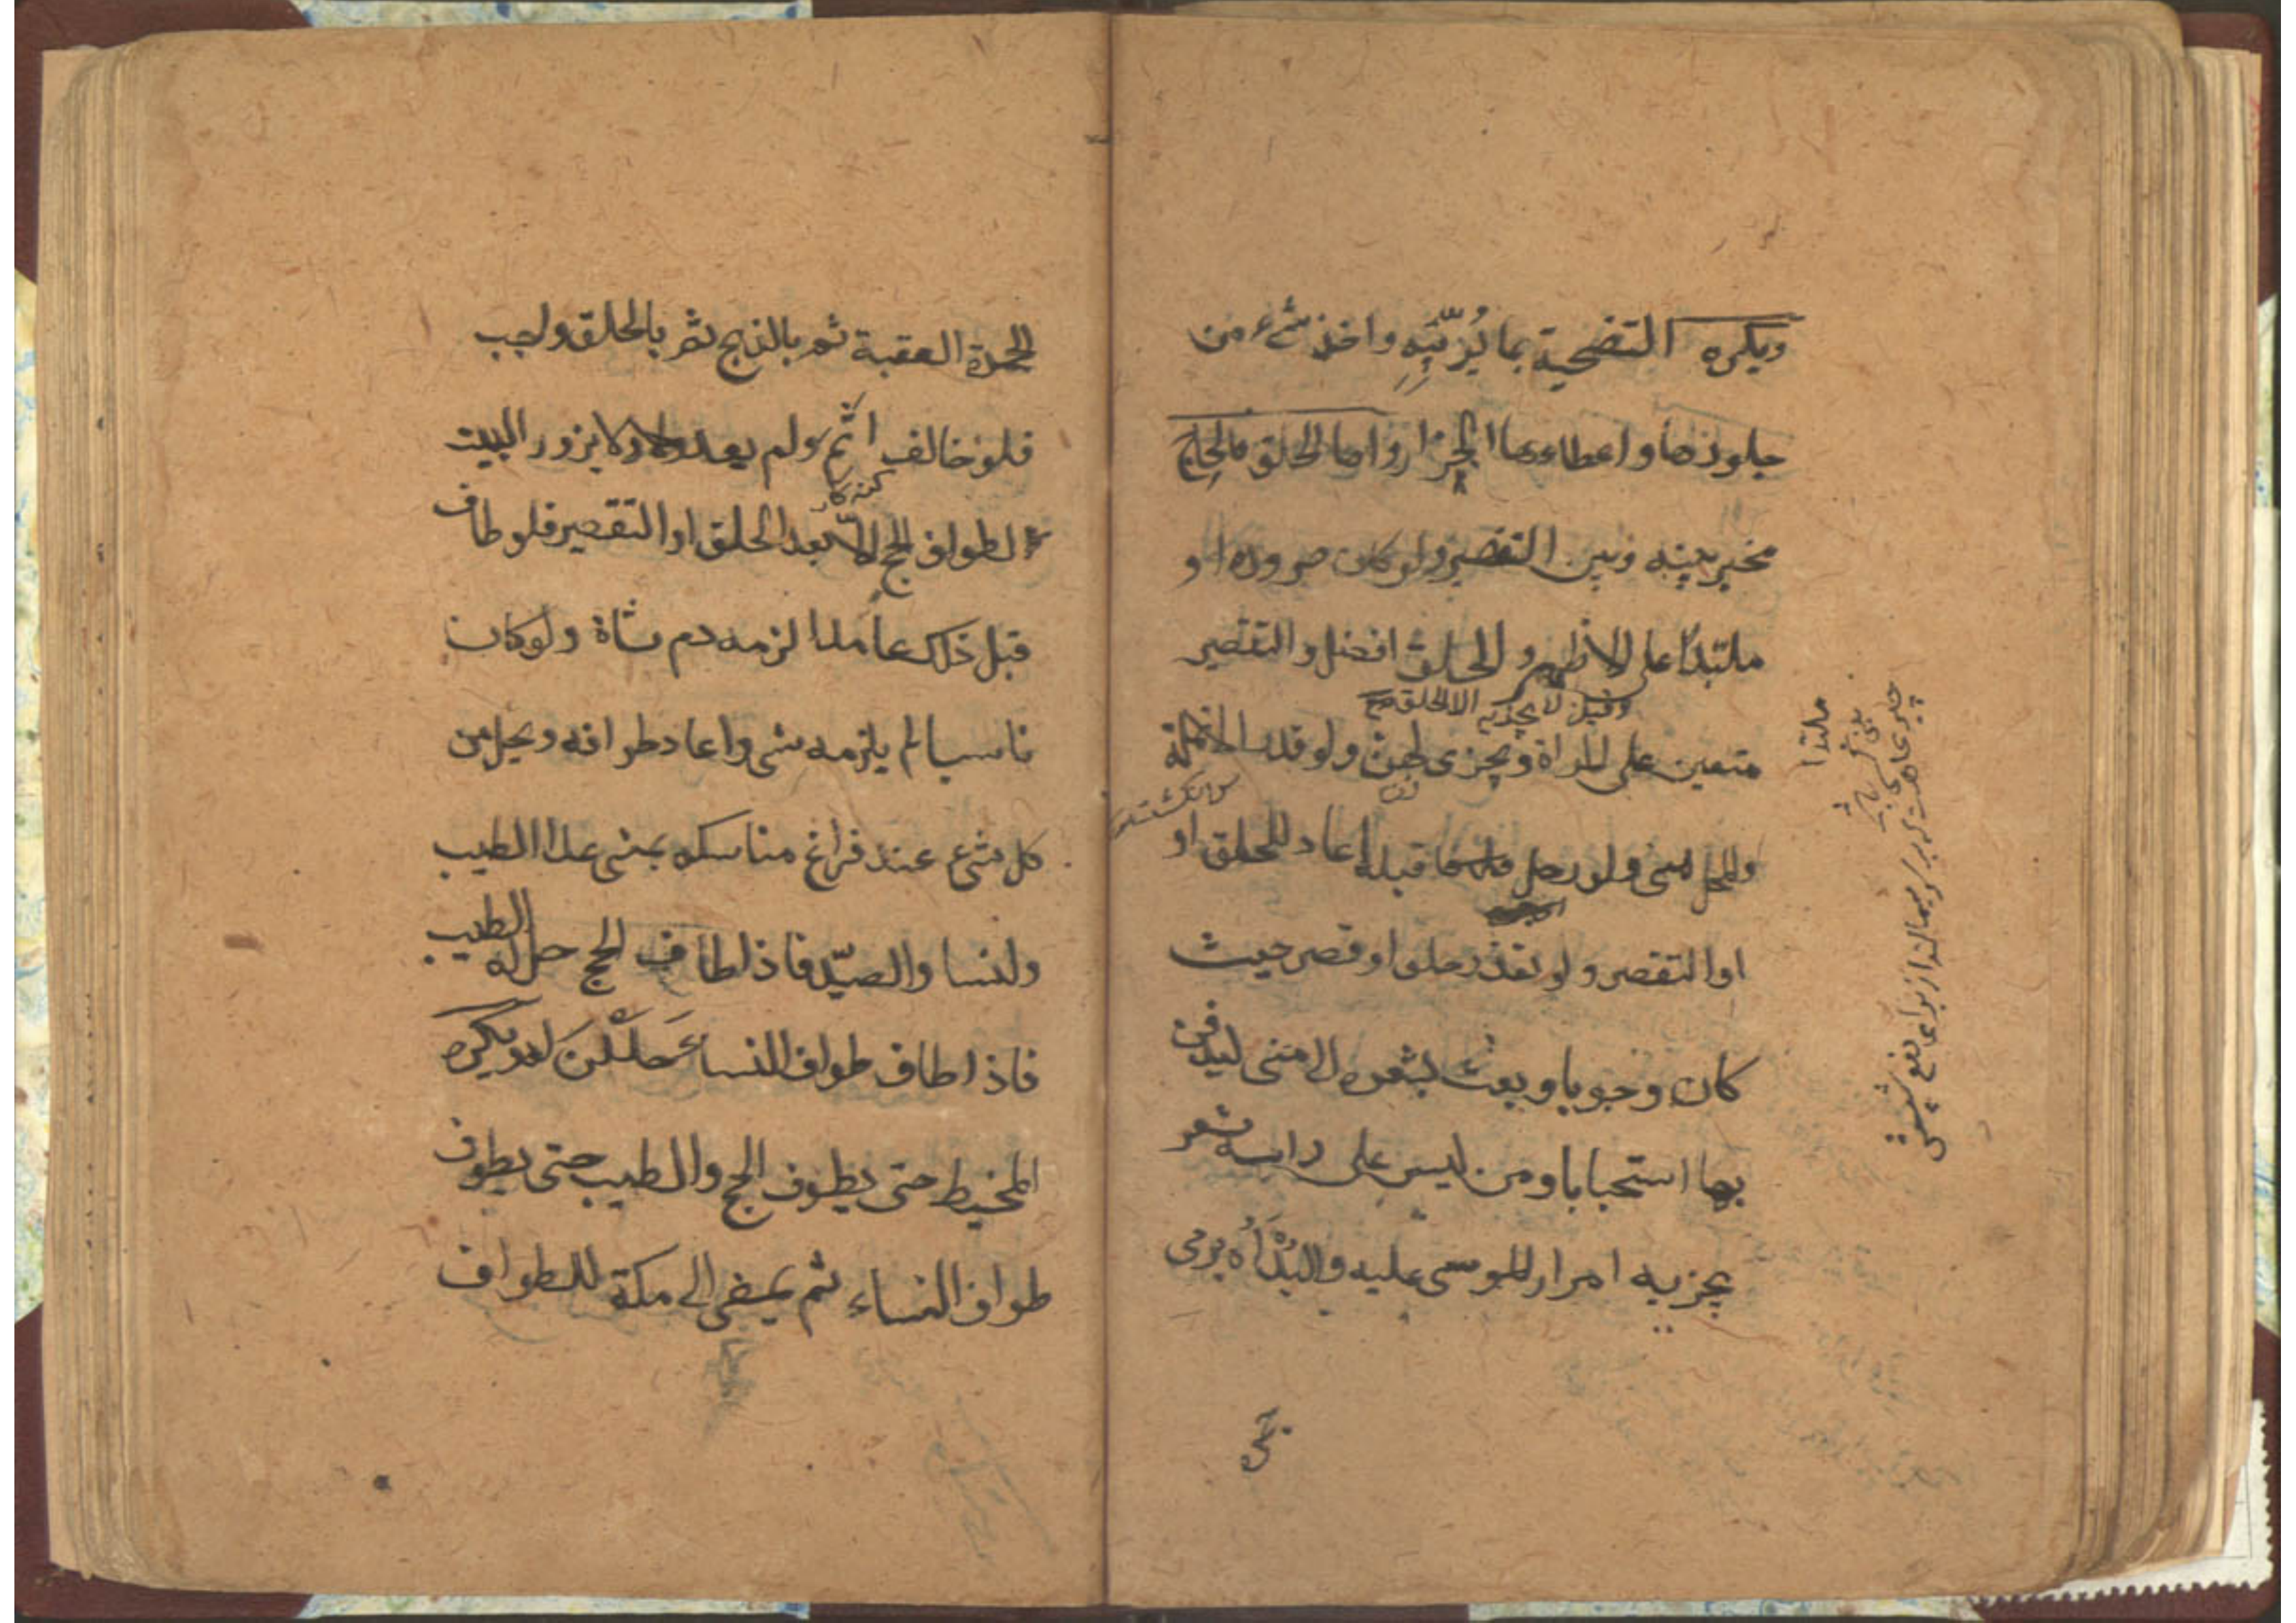 ويكره التضحية بما يُرَبِّيه واخذ شيء من
جلودها واعطاءها الجزار واما الحلق فالحاج
مخير بينه وبين التقصير ولو كان صرورة او
ملبّدًا على الاظهر والحلق افضل والتقصير
وقيل لا يجزيه الا الحلق صح
متعين على المراة ويجزى لهن ولو قدر الانملة
والمحل منى ولو رحل قبله اعاد للحلق او
اوالتقصر ولو تعذر حلق او قصر حيث
كان وجوبا وبعث بشعره الى منى ليدفن
بها استحبابا ومن ليس على راسه شعر
يجزيه امرار الموسى عليه والبُدْأَه برمى
ملبدا
يعنى
الجمرة العقبة ثم بالذبح ثم بالحلق واجب
فلو خالف اثم ولم يعد ولا يزور البيت
لطواف الحج الّا بعد الحلق او التقصير فلو طاف
قبل ذلك عامدا لزمه دم شاة ولو كان
ناسيا لم يلزمه شى واعاد طوافه ويحل من
كل شيء عند فراغ مناسكه بمنى عدا الطيب
ولنسا والصيّد فاذا طاف الحج حل له الطيب
فاذا طاف طواف النساء حَلَلْنَ له ويكره
المخيط حتى يطوف الحج والطيب حتى يطوف
طواف النساء ثم يمضى الى مكة للطواف